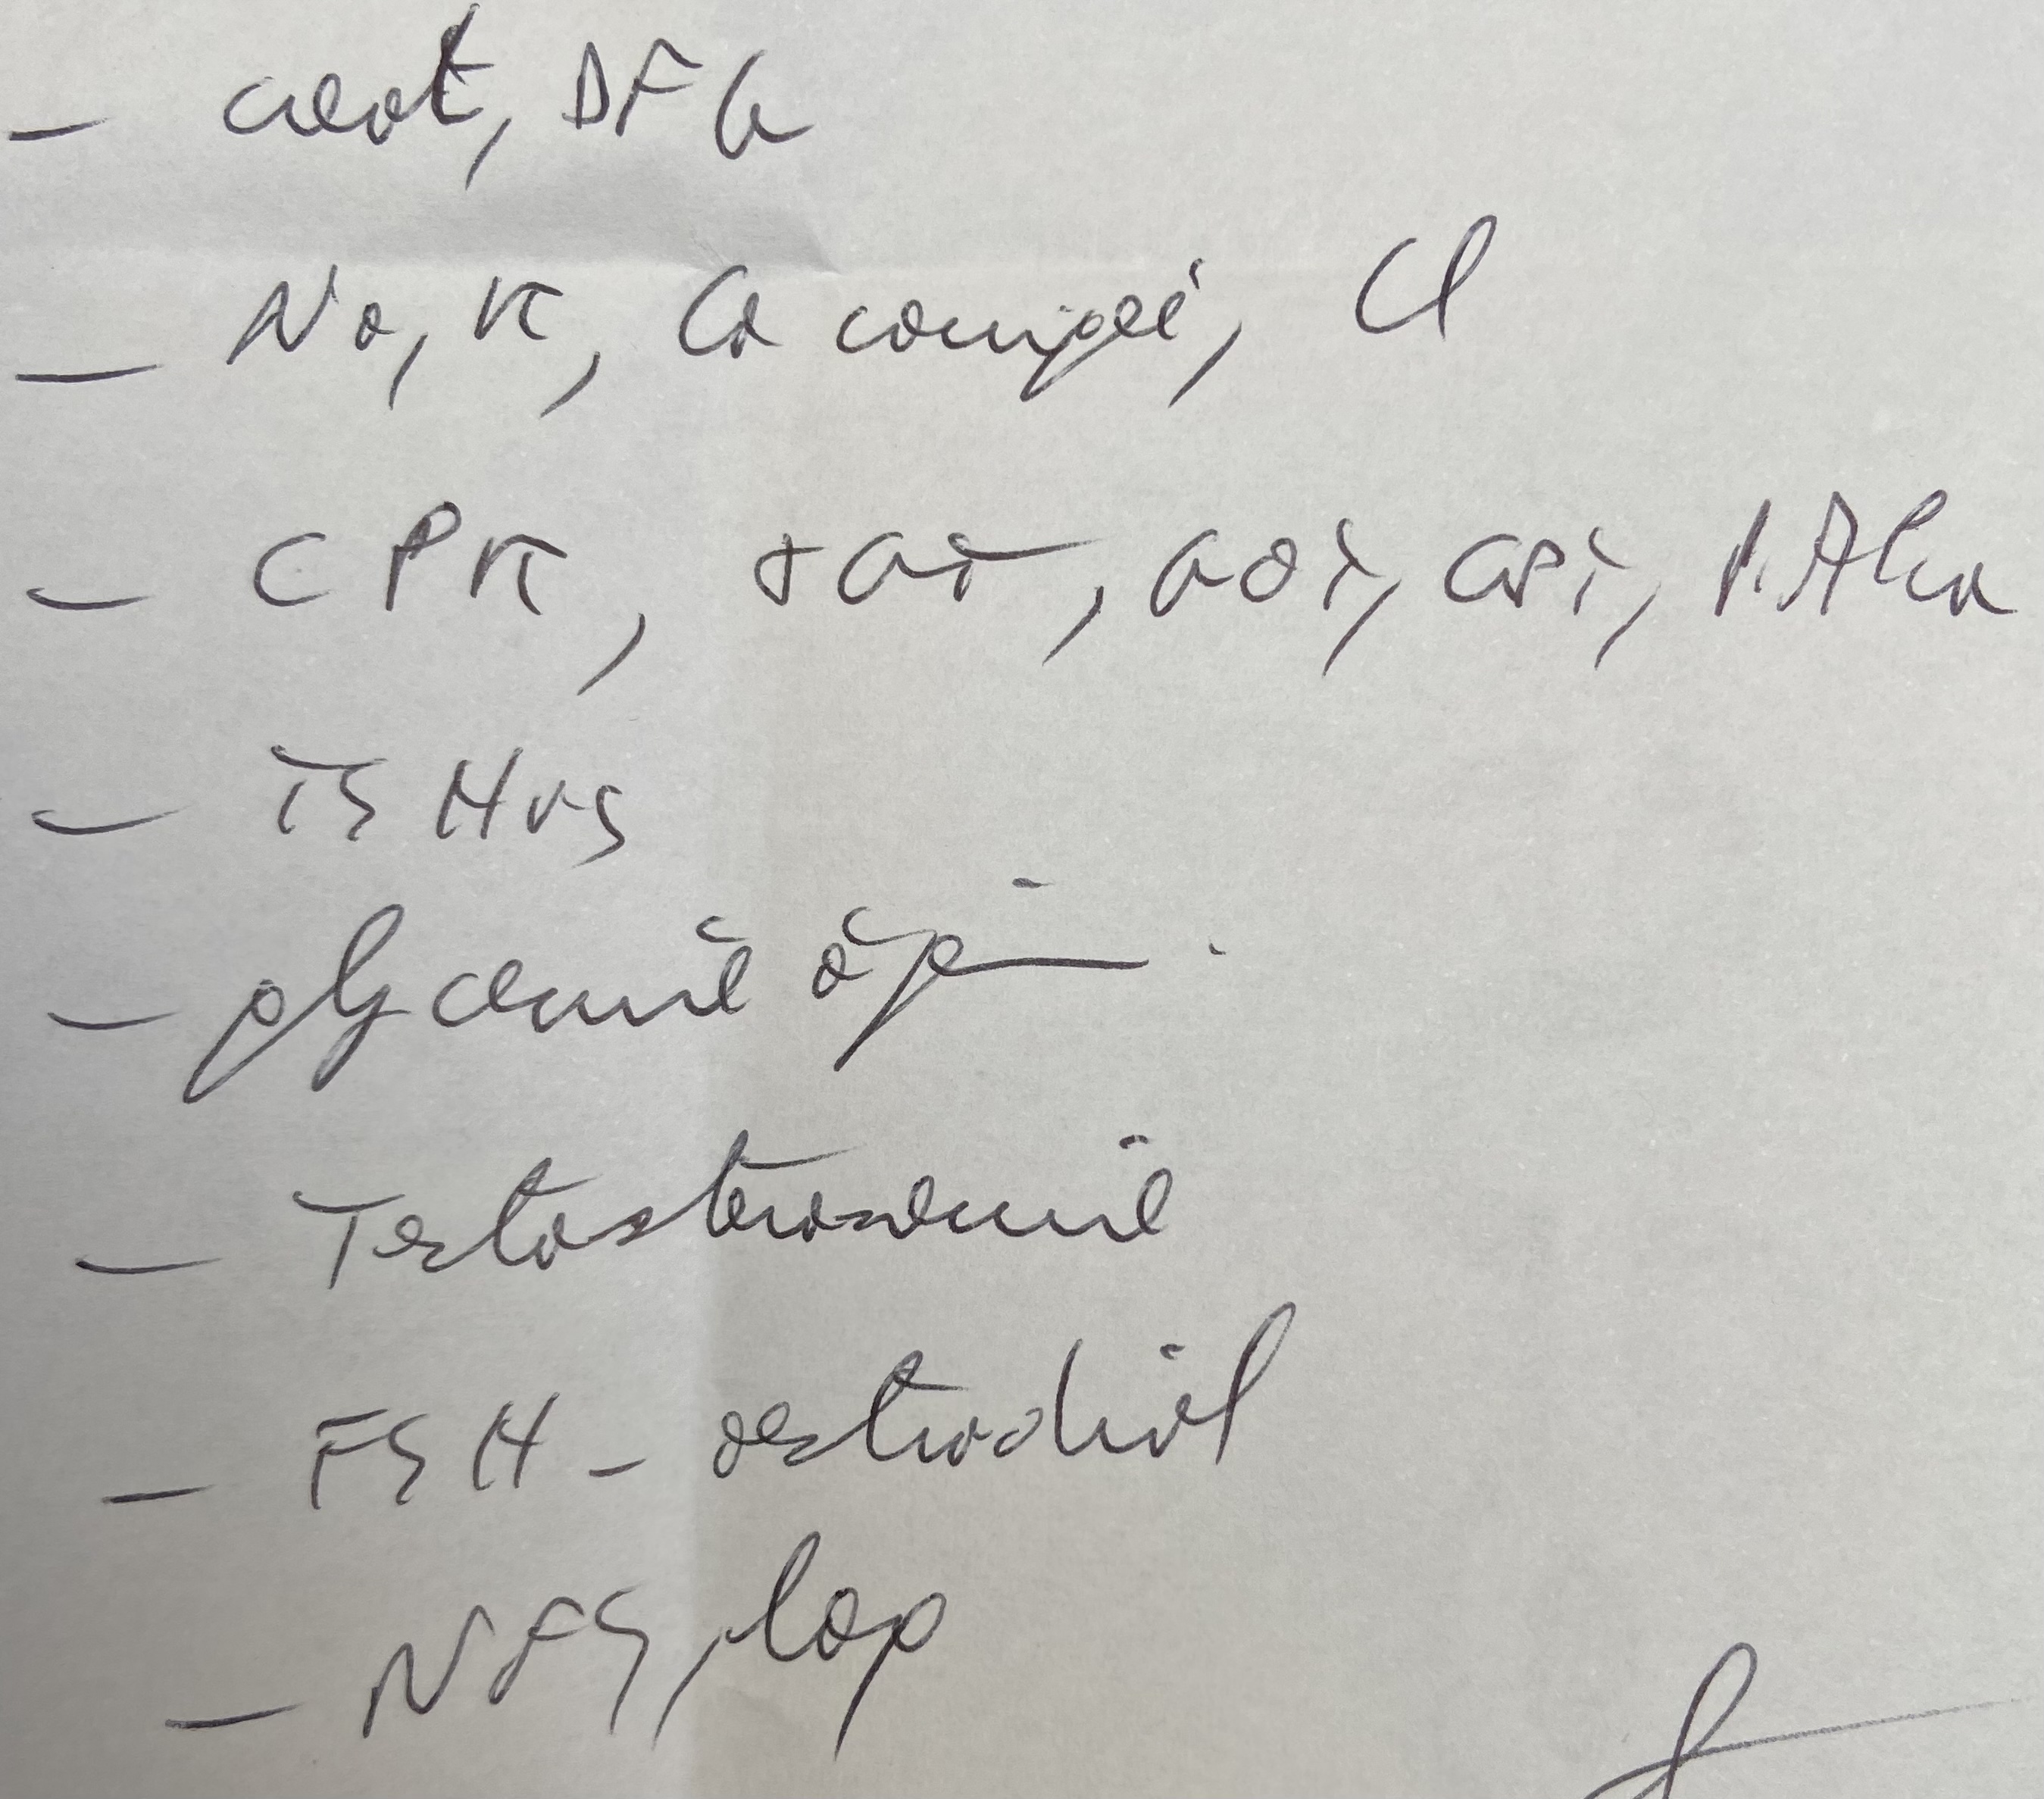 - creat, DFG
- Na, K, Ca corrigé, Cl
- CPK, γGT, GOT, GPT, P.Alca
- TSHus
- glycémie à jeun.
- Testosteronémie
- FSH - oestradiol
- NFS, lap